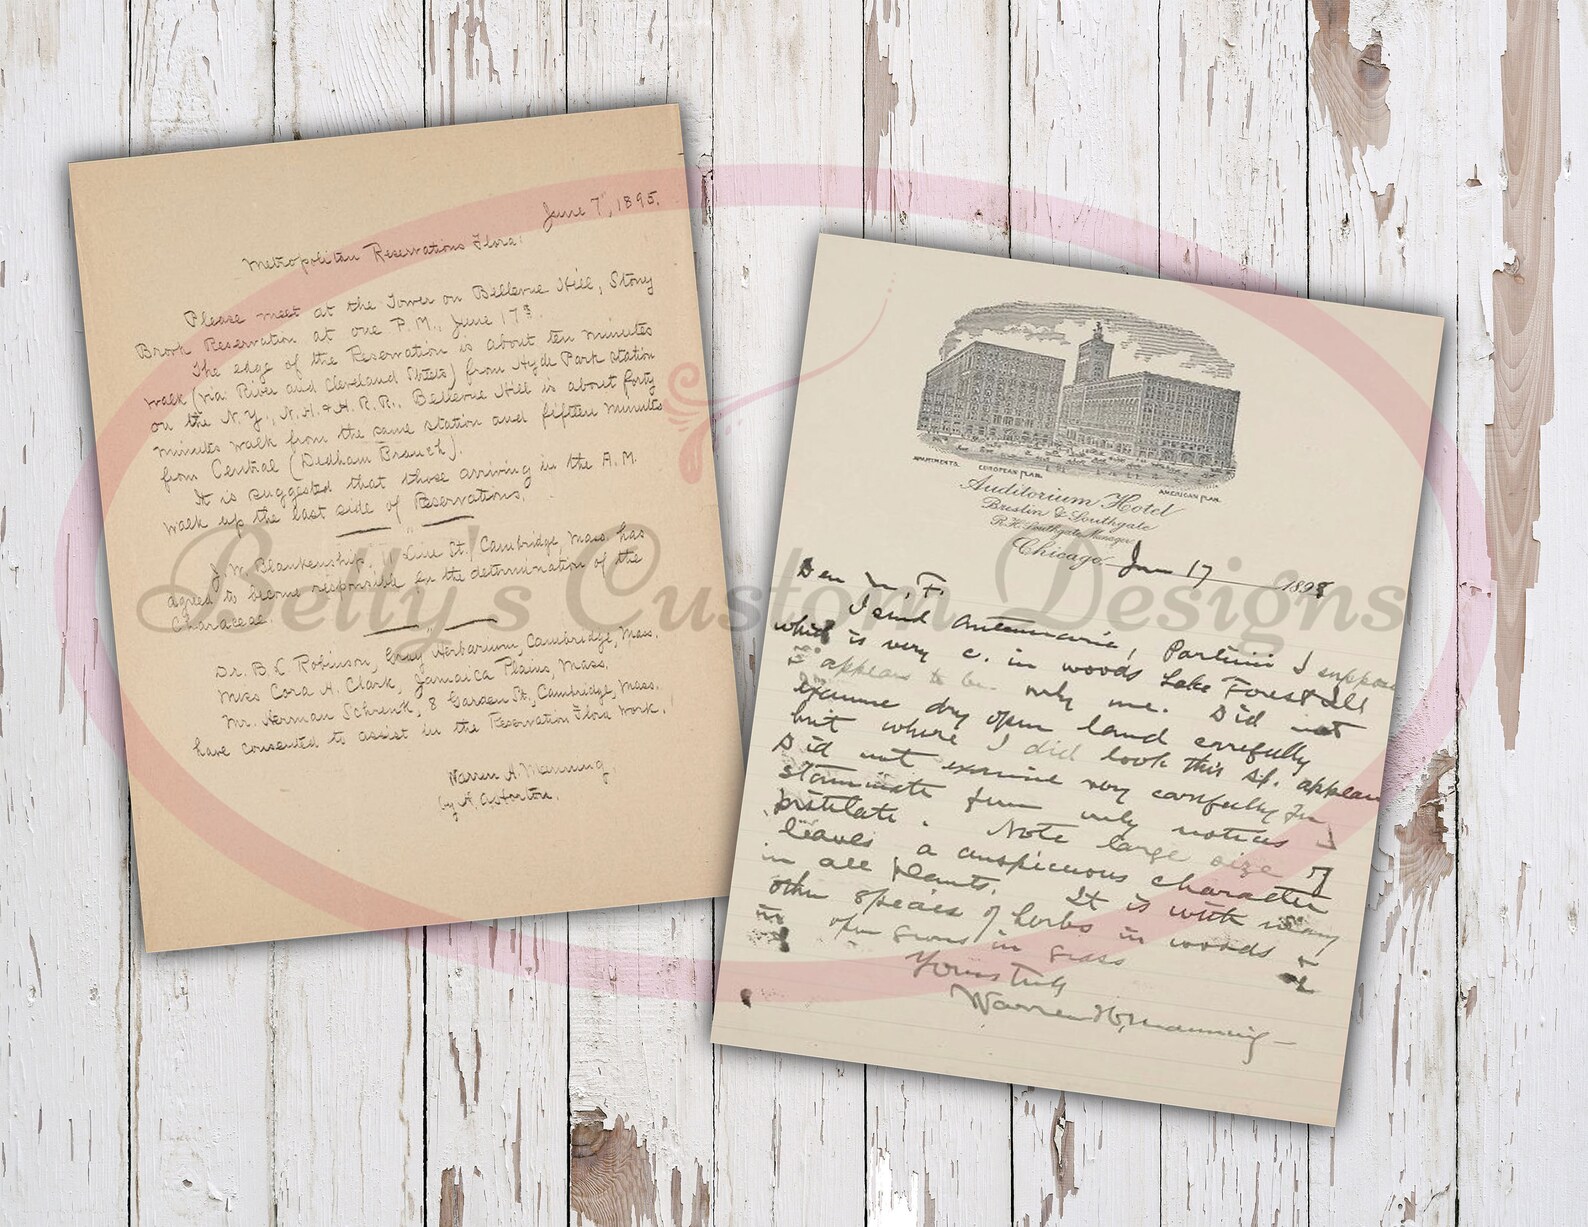 June 7, 1895.
Metropolitan Reservations Flora:
Please meet at the Tower on Bellevue Hill, Stony
Brook Reservation at one P.M., June 17th.
The edge of the Reservation is about ten minutes
walk (via River and Cleveland Streets) from Hyde Park station
on the N.Y., N.H. & H.R.R.. Bellevue Hill is about forty
minutes walk from the same station and fifteen minutes
from Central (Dedham Branch).
It is suggested that those arriving in the A.M.
walk up the East side of Reservations.
J. W. Blankenship, Line St., Cambridge, Mass. has
agreed to become responsible for the determination of the
Characeae.
Dr. B. L. Robinson, Gray Herbarium, Cambridge, Mass.
Miss Cora H. Clark, Jamaica Plains, Mass.
Mr. Herman Schrenk, 8 Garden St., Cambridge, Mass.
have consented to assist in the Reservation Flora work.
Warren H. Manning,
by H. A.
APARTMENTS. EUROPEAN PLAN. AMERICAN PLAN.
Auditorium Hotel
Breslin & Southgate
R.H. Southgate, Manager.
Chicago, Jun 17 1898
Dear Mr. F.
I send Antennaria, Parlinii I suppose
which is very c. in woods Lake Forest Ills
& appears to be only one. Did not
examine dry open land carefully
but where I did look this sp. appears
Did not examine very carefully for
staminate form only notices
pistilate. Note large size of
leaves a conspicuous character
in all plants. It is with many
other species of herbs in woods &
in open grows in grass
Yours truly
Warren H. Manning
Betty's Custom Designs